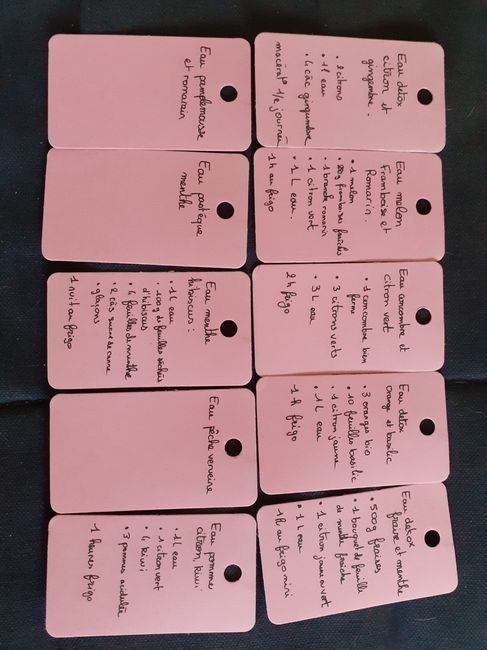 Eau detox
citron et
gingembre.
• 2 citrons
• 1 l eau
• 4 càc gingembre
macérat° 1/2 journée
Eau melon
Framboise et
Romarin.
• 1 melon
• 20g framboises fraîches
• 1 branche romarin
• 1 citron vert
• 1 L eau.
1 h au frigo
Eau concombre et
citron vert
• 1 concombre bien
ferme
• 3 citrons verts
• 3 L eau
2h frigo
Eau detox
orange et basilic
• 3 oranges bio
• 10 feuilles basilic
• 1 citron jaune
• 1 L eau
1 h frigo
Eau detox
fraise et menthe
• 500g fraises
• 1 bouquet de feuille
de menthe fraîche
• 1 citron jaune ou vert
• 1 L eau
1h au frigo mini
Eau pamplemousse
et romarin
Eau pastèque
menthe
Eau menthe
hibiscus :
• 1 L eau
• 100g de feuilles séchées
d'hibiscus
• 4 feuilles de menthe
• 2 càs sucre de canne
• glaçons
1 nuit au frigo
Eau pêche verveine
Eau pomme
citron, kiwi
• 1 L eau
• 1 citron vert
• 4 kiwi
• 3 pommes acidulée
1 heures frigo